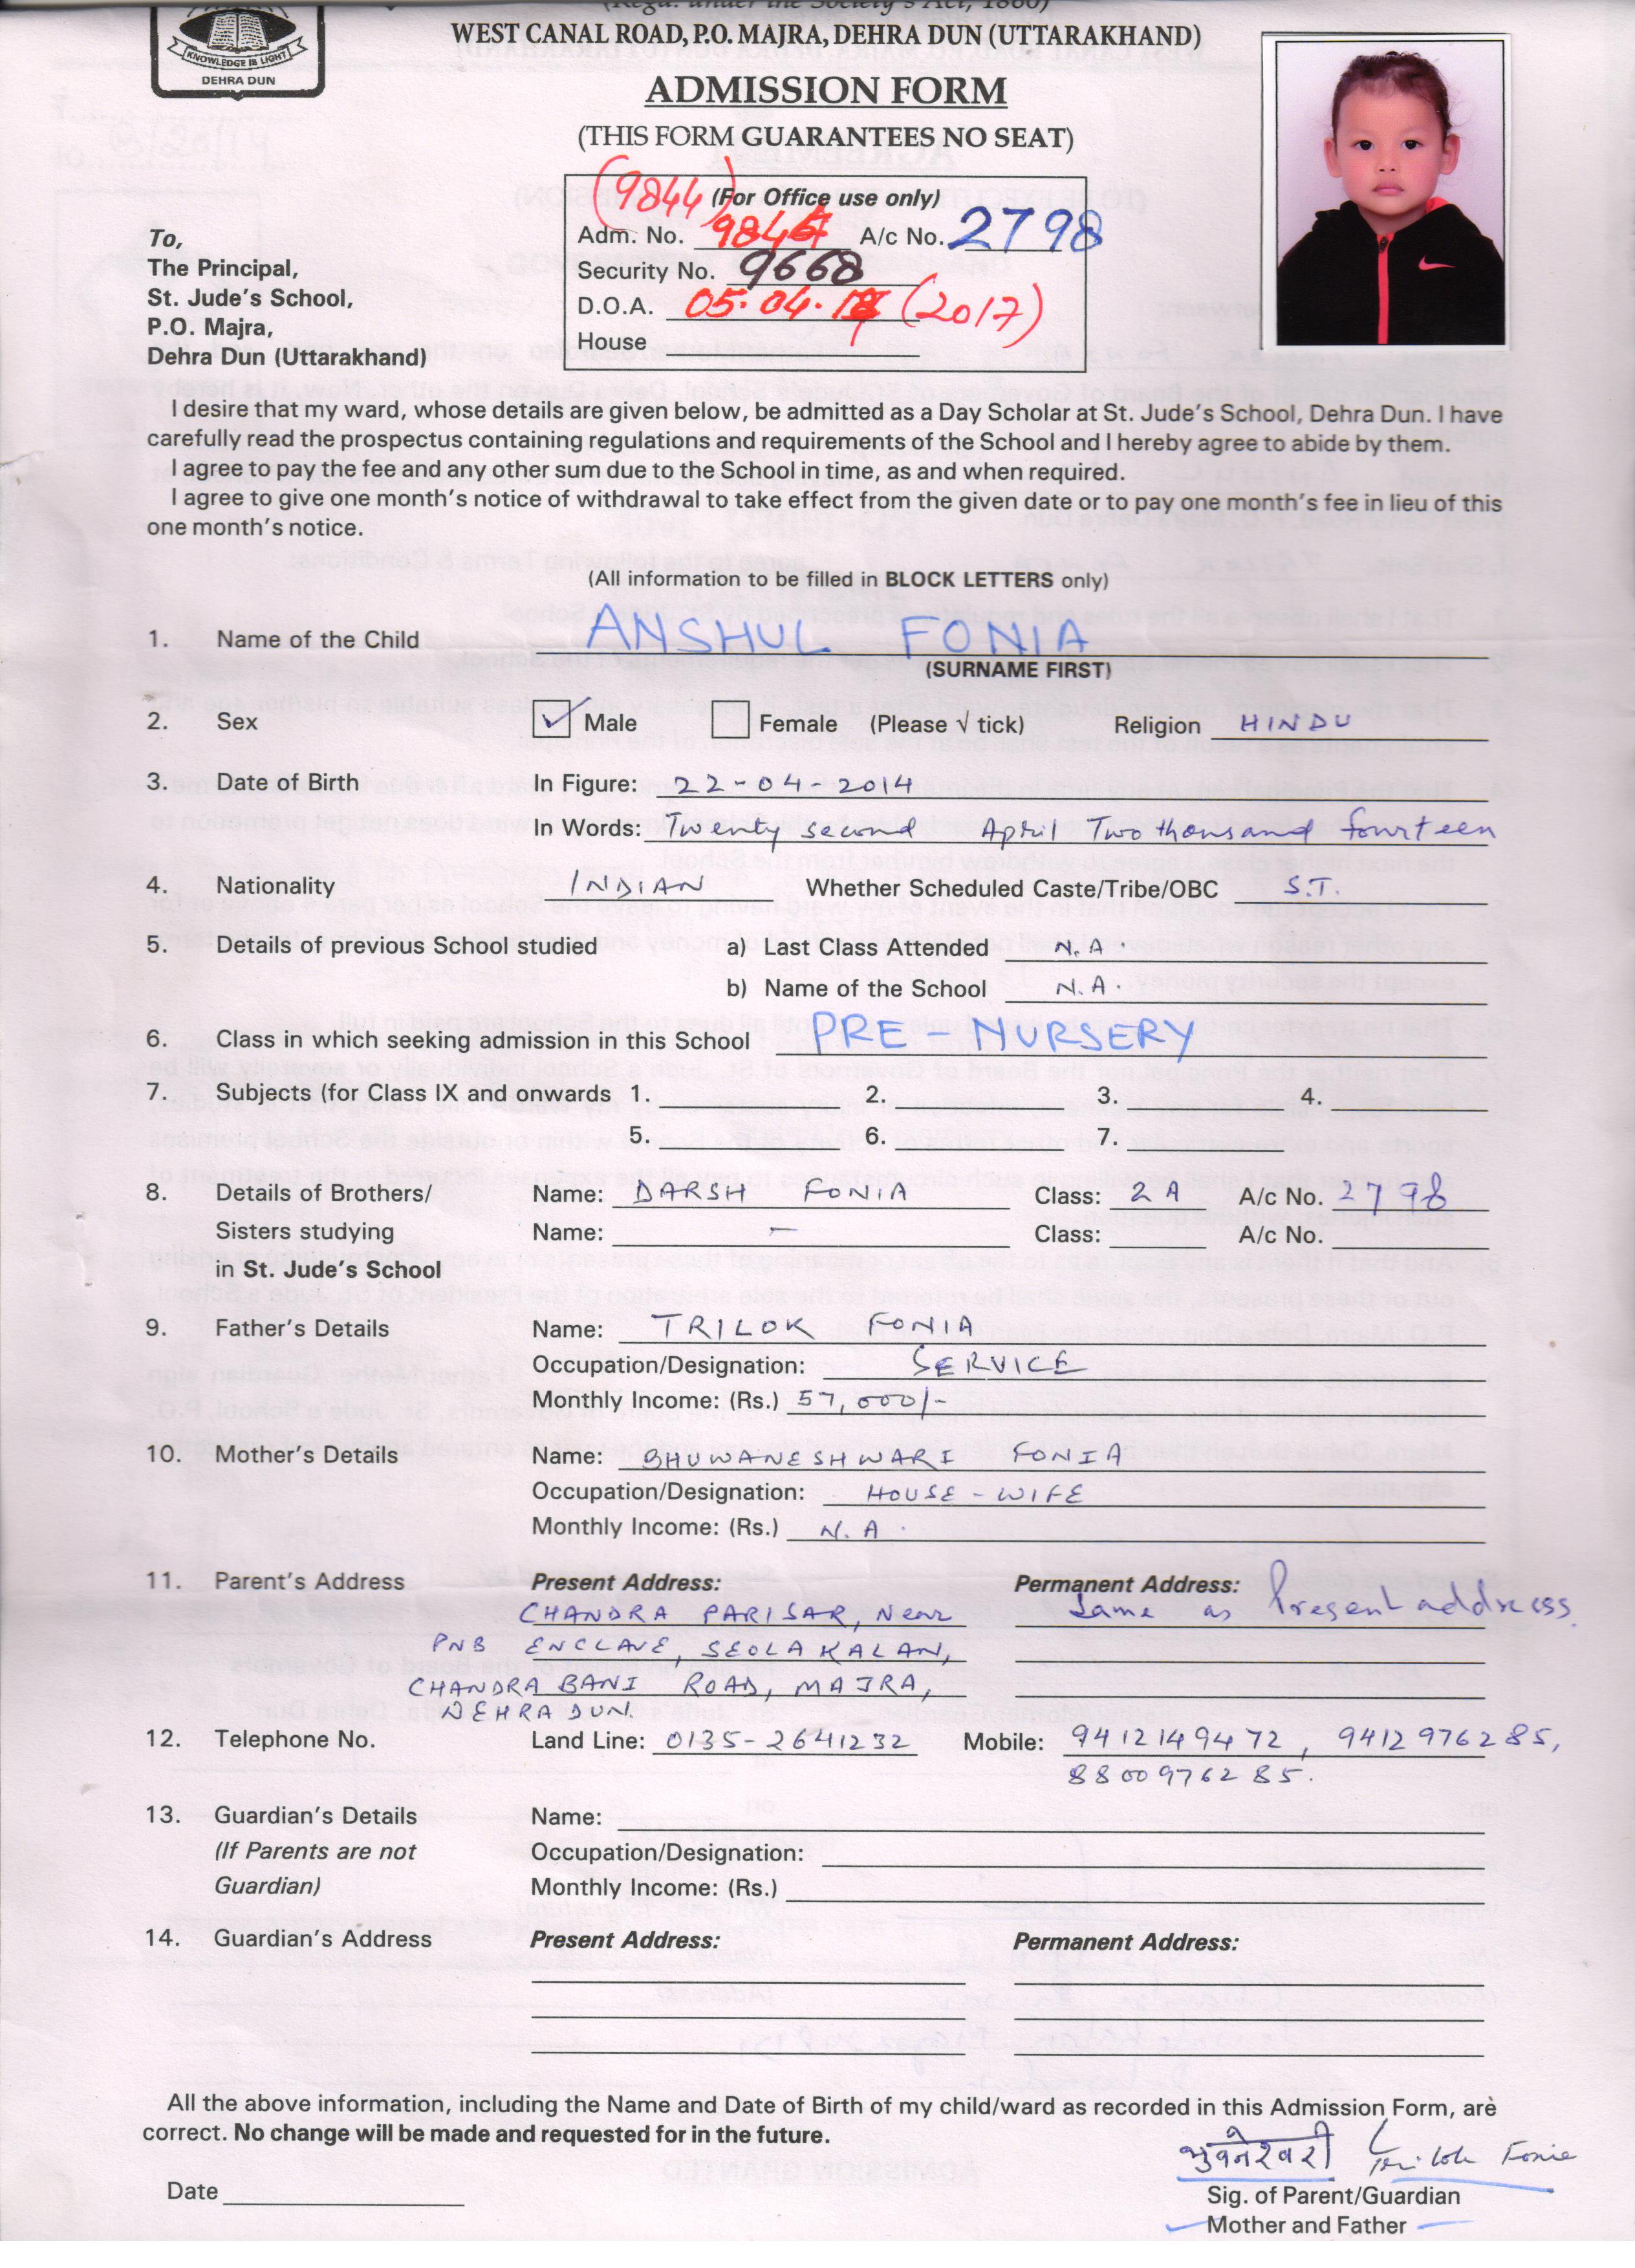 (Regd. under the Society's Act, 1860)
WEST CANAL ROAD, P.O. MAJRA, DEHRA DUN (UTTARAKHAND)
KNOWLEDGE IS LIGHT
DEHRA DUN
ADMISSION FORM
(THIS FORM GUARANTEES NO SEAT)
(9844) (For Office use only)
Adm. No. A/c No. 2798
Security No. 9668
D.O.A. 05.04. (2017)
House
To,
The Principal,
St. Jude's School,
P.O. Majra,
Dehra Dun (Uttarakhand)
I desire that my ward, whose details are given below, be admitted as a Day Scholar at St. Jude's School, Dehra Dun. I have
carefully read the prospectus containing regulations and requirements of the School and I hereby agree to abide by them.
I agree to pay the fee and any other sum due to the School in time, as and when required.
I agree to give one month's notice of withdrawal to take effect from the given date or to pay one month's fee in lieu of this
one month's notice.
(All information to be filled in BLOCK LETTERS only)
1. Name of the Child ANSHUL FONIA
(SURNAME FIRST)
2. Sex Male Female (Please √ tick) Religion HINDU
3. Date of Birth In Figure: 22-04-2014
In Words: Twenty second April Two thousand fourteen
4. Nationality INDIAN Whether Scheduled Caste/Tribe/OBC S.T.
5. Details of previous School studied a) Last Class Attended N.A.
b) Name of the School N.A.
6. Class in which seeking admission in this School PRE - NURSERY
7. Subjects (for Class IX and onwards 1. 2. 3. 4.
5. 6. 7.
8. Details of Brothers/ Name: DARSH FONIA Class: 2 A A/c No. 2798
Sisters studying Name: - Class: A/c No.
in St. Jude's School
9. Father's Details Name: TRILOK FONIA
Occupation/Designation: SERVICE
Monthly Income: (Rs.) 57,000/-
10. Mother's Details Name: BHUWANESHWARI FONIA
Occupation/Designation: HOUSE - WIFE
Monthly Income: (Rs.) N.A.
11. Parent's Address Present Address: Permanent Address:
CHANDRA PARISAR, Near Same as Present address.
PNB ENCLAVE, SEOLA KALAN,
CHANDRA BANI ROAD, MAJRA,
DEHRA DUN.
12. Telephone No. Land Line: 0135-2641232 Mobile: 9412149472, 9412976285,
8800976285.
13. Guardian's Details Name:
(If Parents are not Occupation/Designation:
Guardian) Monthly Income: (Rs.)
14. Guardian's Address Present Address: Permanent Address:
All the above information, including the Name and Date of Birth of my child/ward as recorded in this Admission Form, are
correct. No change will be made and requested for in the future.
भुवनेश्वरी Trilok Fonia
Date
Sig. of Parent/Guardian
Mother and Father